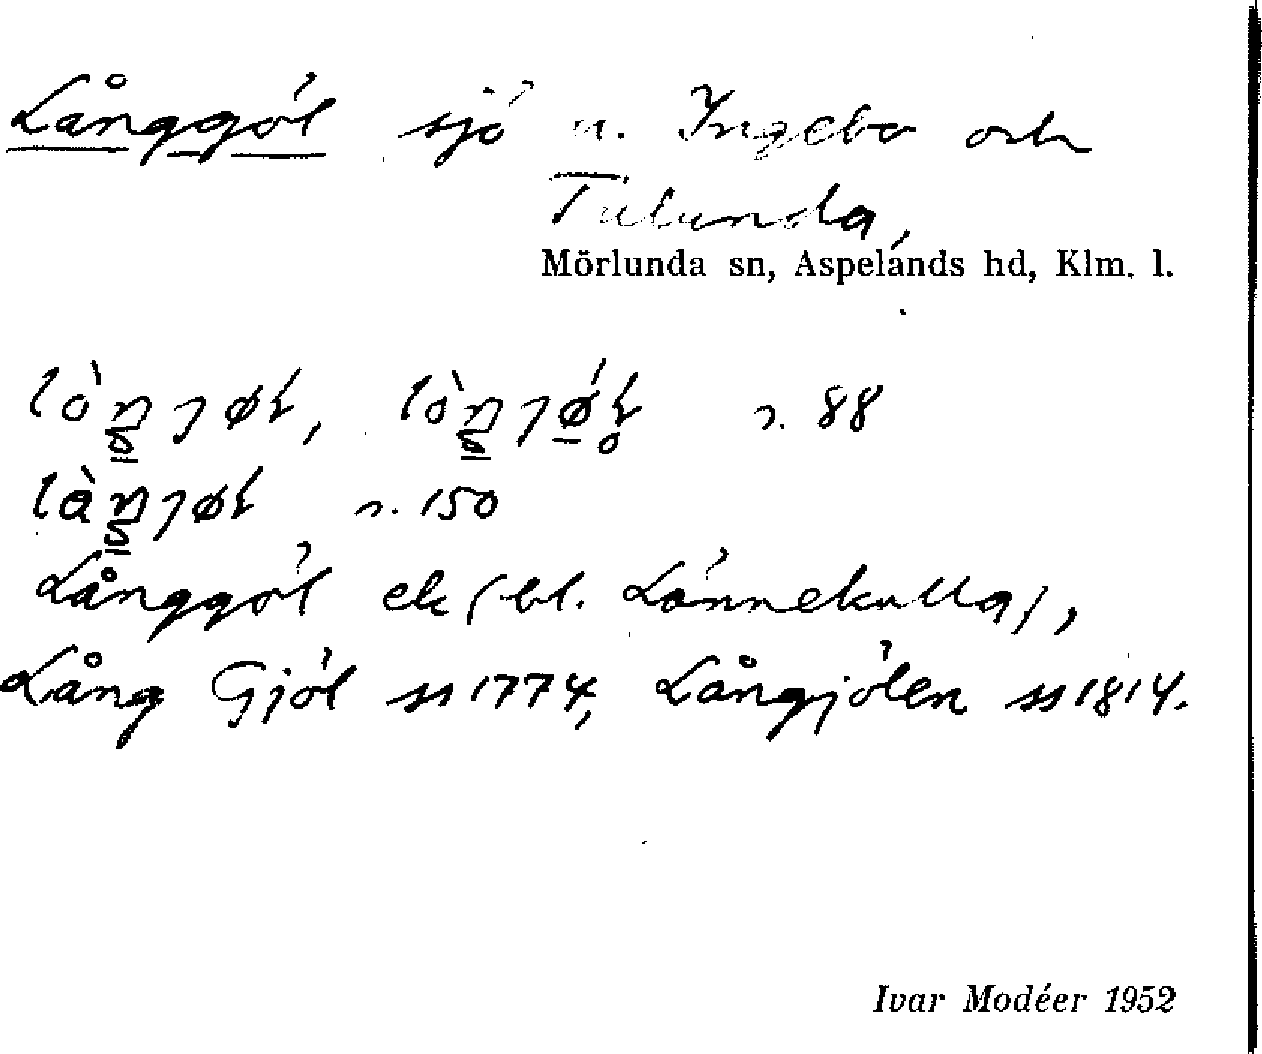 Långgöl sjö u. Ingebo och
Tulunda,
Mörlunda sn, Aspelands hd, Klm. l.
s. 88
s. 150
Långgöl ek (bl. Lönnekulla),
Lång Gjöl ss 1774, Långjölen ss 1814.
Ivar Modéer 1952